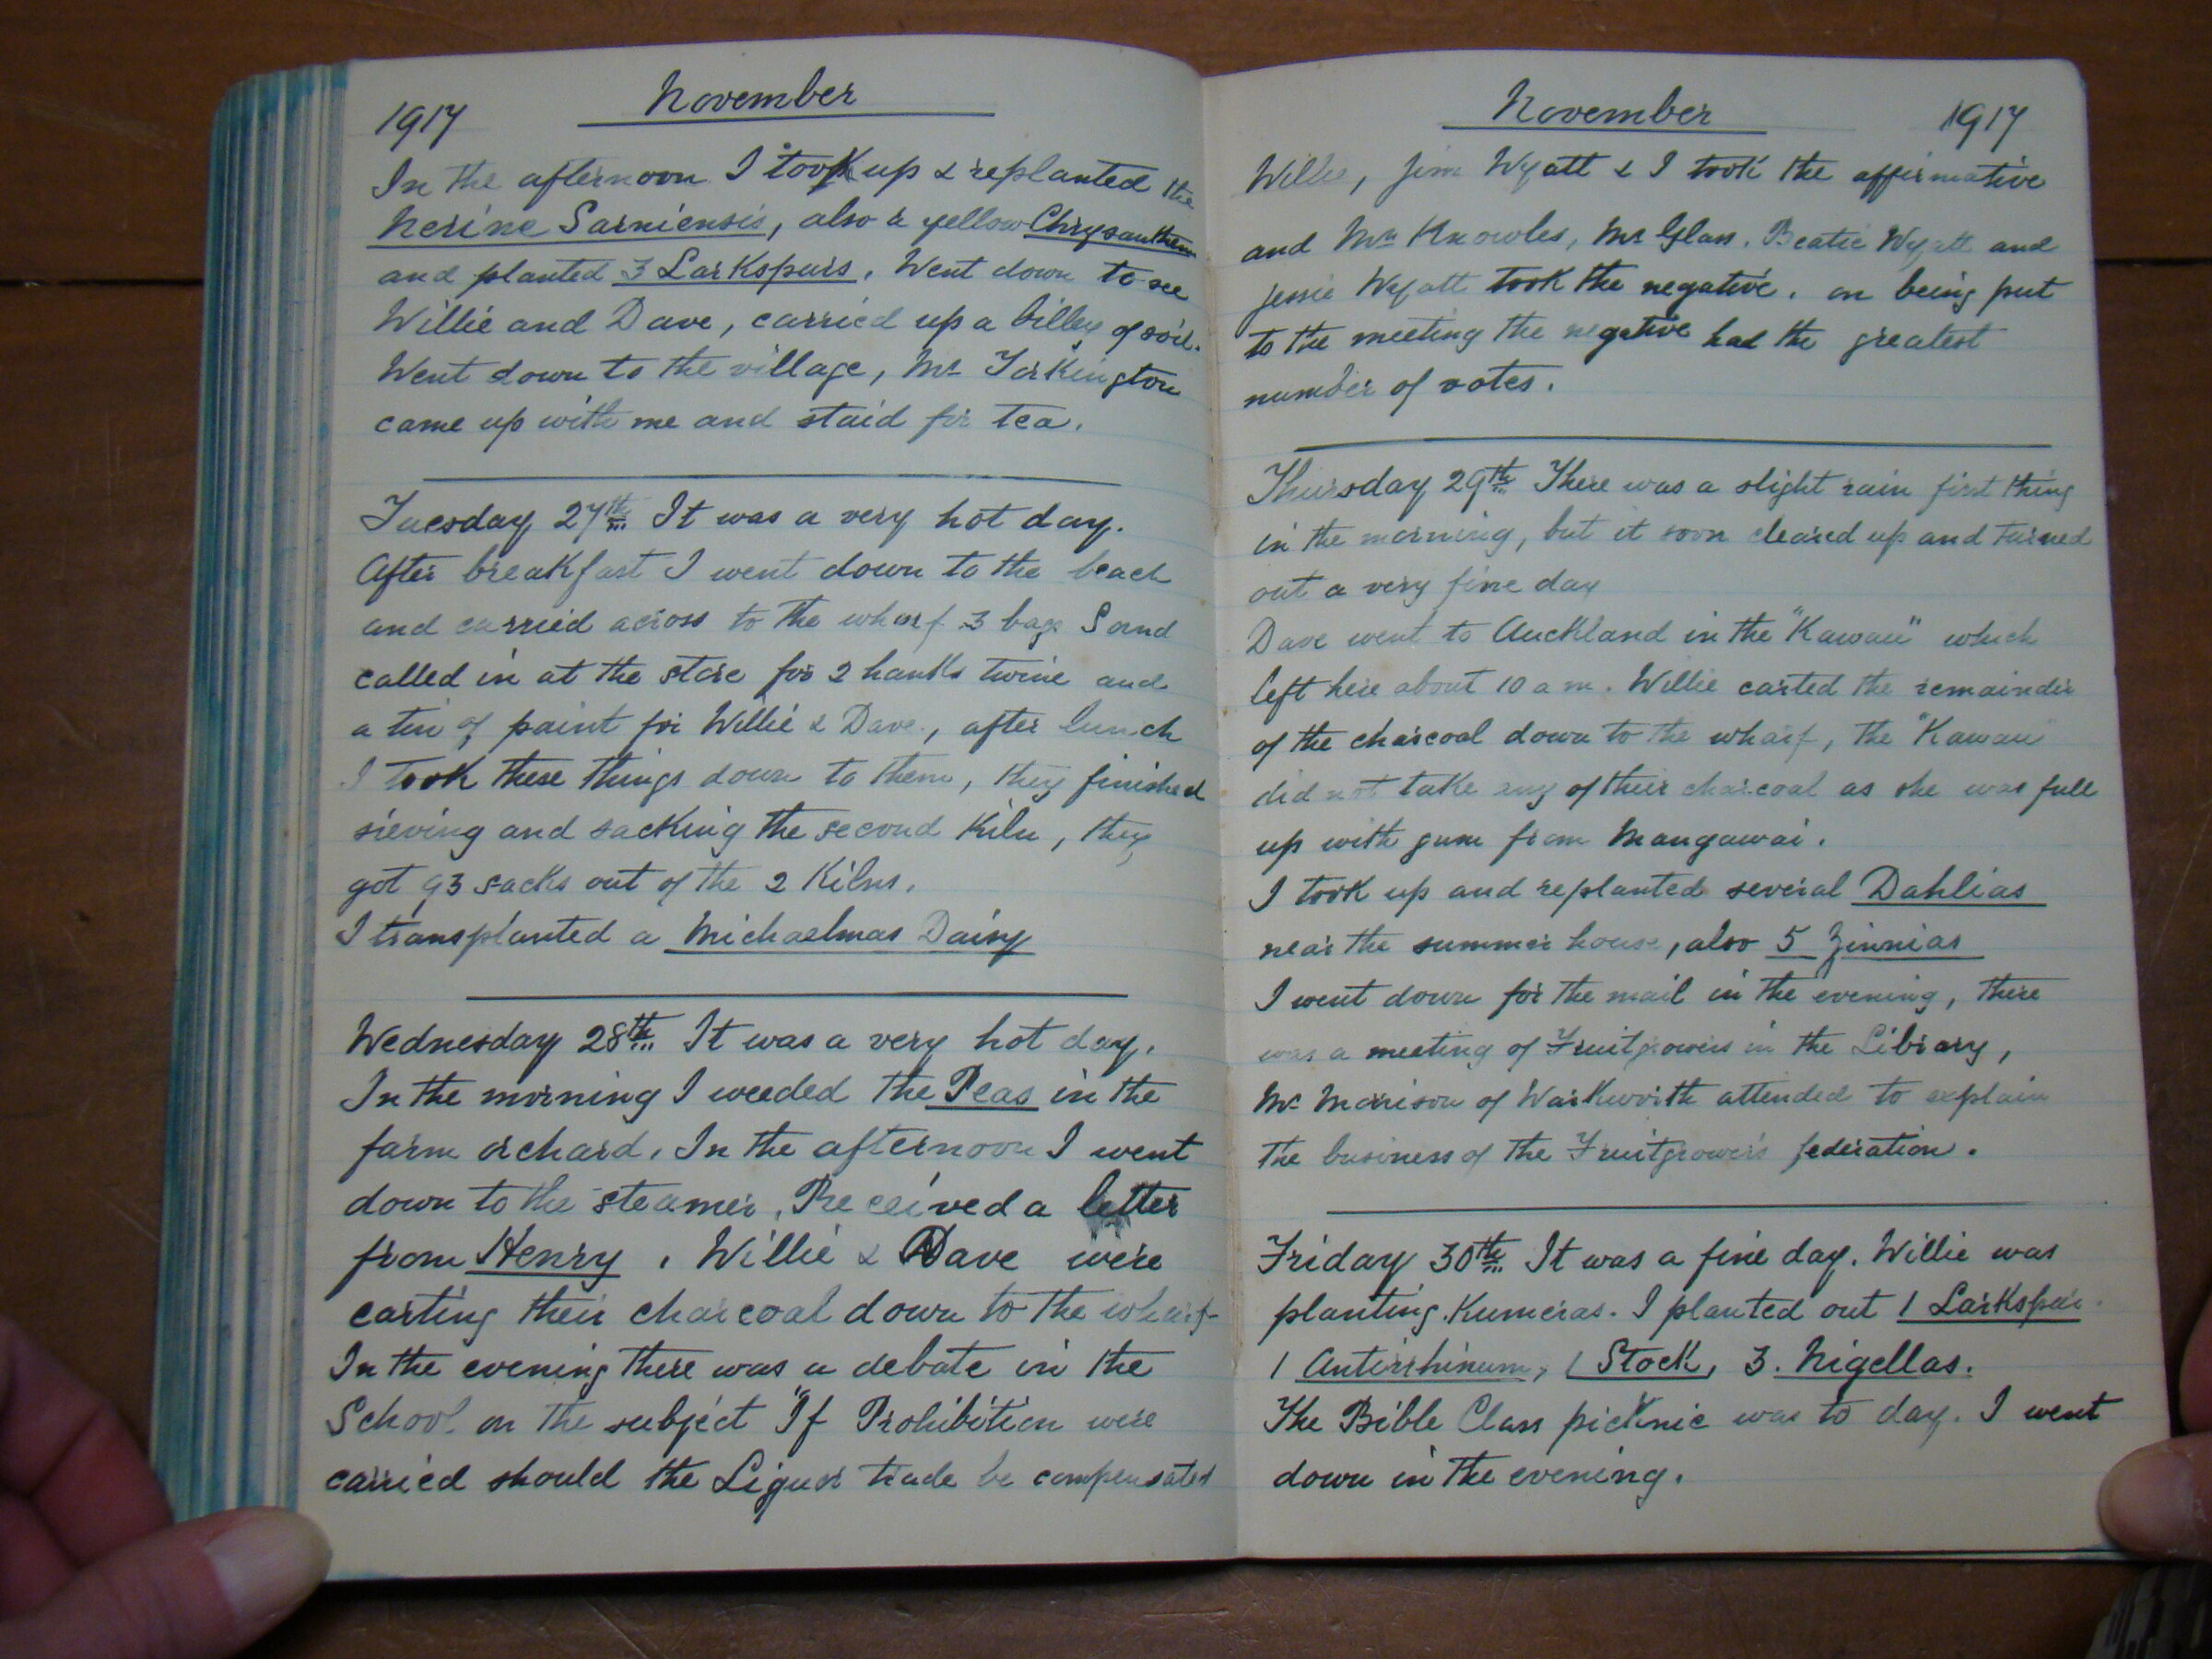 1917 November
In the afternoon I took up & replanted the
Nerine Sarniensis, also a yellow Chrysanthem
and planted 3 Larkspurs. Went down to see
Willie and Dave, carried up a billey of soil.
Went down to the village, Mr Torkington
came up with me and staid for tea.
Tuesday 27th It was a very hot day.
After breakfast I went down to the beach
and carried across to the wharf 3 bags Sand
called in at the store for 2 hanks twine and
a tin of paint for Willie & Dave., after lunch
I took these things down to them, they finished
sieving and sacking the second Kiln, they
got 93 sacks out of the 2 Kilns.
I transplanted a Michaelmas Daisy
Wednesday 28th It was a very hot day.
In the morning I weeded the Peas in the
farm orchard. In the afternoon I went
down to the steamer. Received a letter
from Henry. Willie & Dave were
carting their charcoal down to the wharf
In the evening there was a debate in the
School on the subject "If Prohibition were
carried should the Liquor trade be compensated
November 1917
Willie, Jim Wyatt & I took the affirmative
and Knowles, Mr Glass. Beatie Wyatt and
Jessie Wyatt took the negative. on being put
to the meeting the negative had the greatest
number of votes.
Thursday 29th There was a slight rain first thing
in the morning, but it soon cleared up and turned
out a very fine day
Dave went to Auckland in the "Kawau" which
left here about 10 a m. Willie carted the remainder
of the charcoal down to the wharf, the "Kawau"
did not take any of their charcoal as she was full
up with gum from Mangawai.
I took up and replanted several Dahlias
near the summer house, also 5 Zinnias
I went down for the mail in the evening, there
was a meeting of Fruitgrowers in the Library,
Mr Morrison of Warkworth attended to explain
the business of the Fruitgrower's federation.
Friday 30th It was a fine day. Willie was
planting Kumeras. I planted out 1 Larkspur.
1 Antirrhinum, 1 Stock, 3. Nigellas.
The Bible Class picknic was to day. I went
down in the evening.